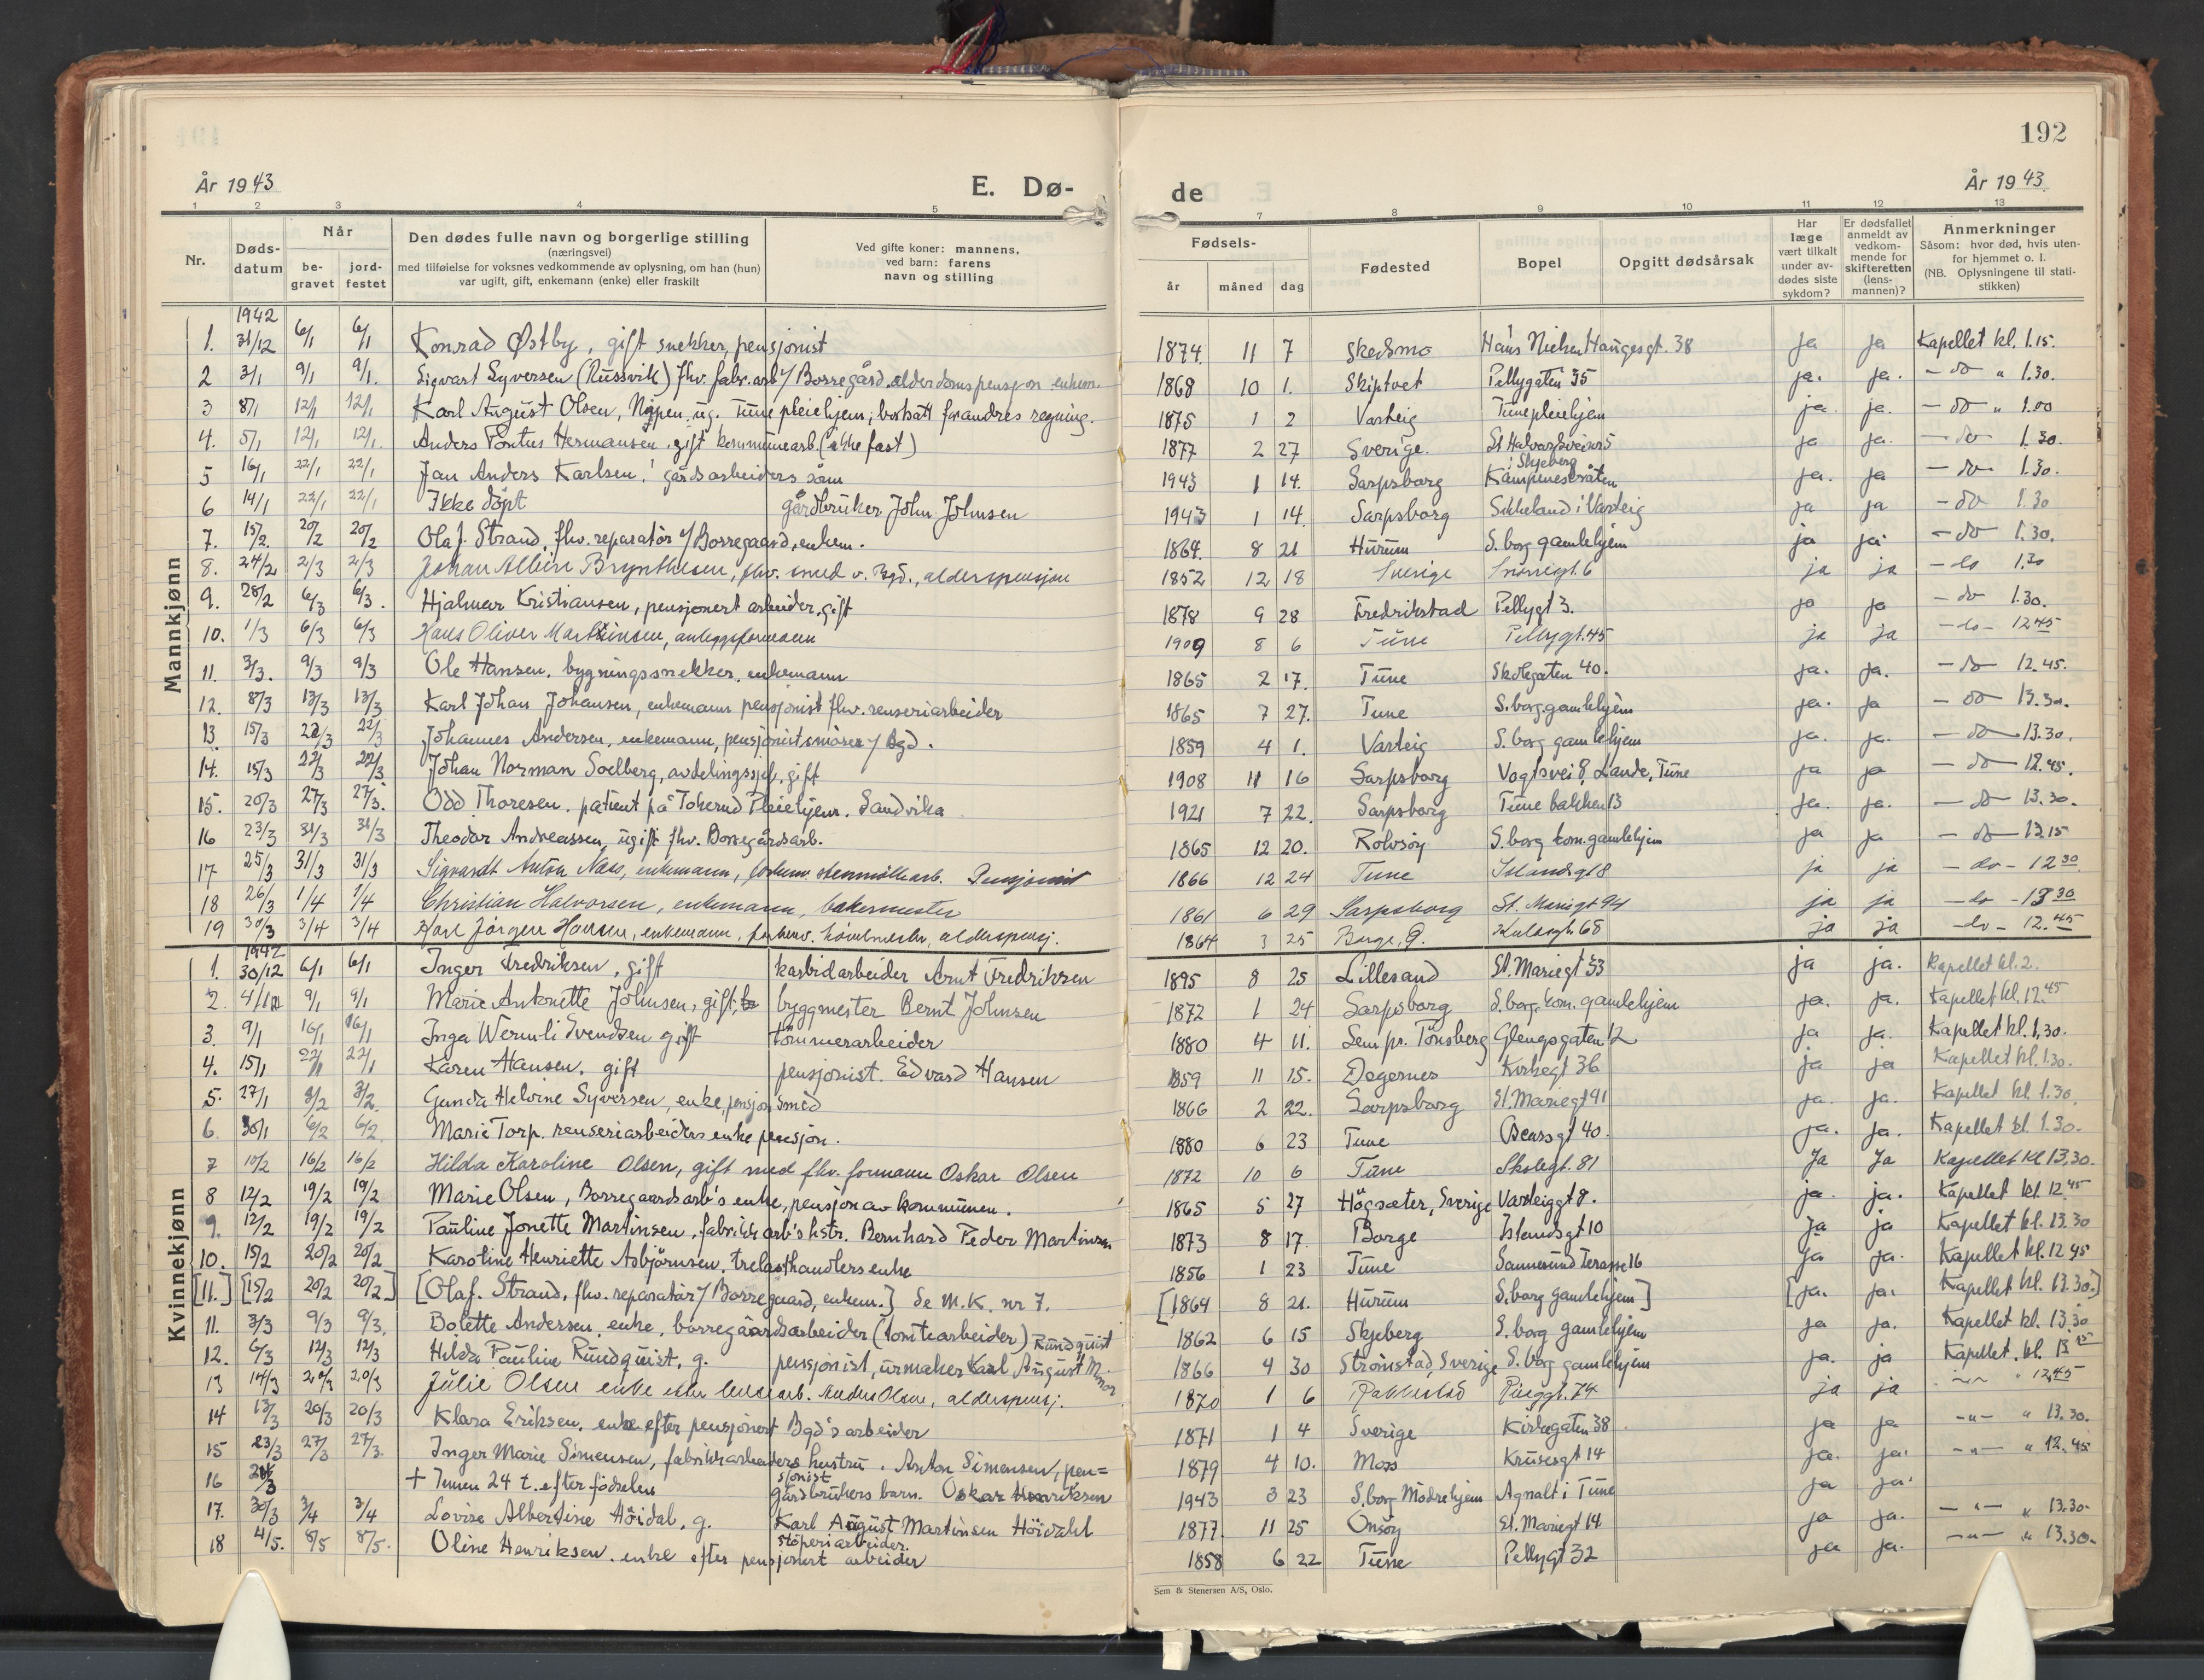 192
År 1943
E. Dø-
de
År 1943
1 2 3 4 5 7 8 9 10 11 12 13
Nr.
Døds-
datum
Når
be-
gravet
jord-
festet
Den dødes fulle navn og borgerlige stilling
(næringsvei)
med tilføielse for voksnes vedkommende av oplysning, om han (hun)
var ugift, gift, enkemann (enke) eller fraskilt
Ved gifte koner: mannens,
ved barn: farens
navn og stilling
Fødsels-
år måned dag
Fødested
Bopel
Opgitt dødsårsak
Har
læge
vært tilkalt
under av-
dødes siste
sykdom?
Er dødsfallet
anmeldt av
vedkom-
mende for
skifteretten
(lens-
mannen)?
Anmerkninger
Såsom: hvor død, hvis uten-
for hjemmet o. l.
(NB. Oplysningene til stati-
stikken)
Mannkjønn
1942
1. 31/12 6/1 6/1 Konrad Østby, gift snekker, pensjonist 1874 11 7 Skedsmo Hans Nielsen Haugesgt. 38 ja ja Kapellet kl. 1.15.
2 3/1 9/1 9/1. Sigvart Syversen (Russvik) fhv. fabr. arb v/ Borregård. alderdomspensjon enkem. 1868 10 1. Skiptvet Pellygaten 35 ja. ja. - do " 1.30.
3 8/1 12/1 12/1. Karl August Olsen, ug. Tune pleiehjem; bortsatt for andres regning. 1875 1 2 Varteig Tunepleiehjem ja. ja. - do " 1.00
4. 5/1 12/1 12/1. Anders Pontus Hermansen. gift kommunearb. (ikke fast) 1877 2 27 Sverige. St Halvardsvei ja ja. - do 1.30.
5 16/1 22/1 22/1 Jan Anders Karlsen! gårdsarbeiders sønn 1943 1 14. Sarpsborg i Skjeberg ja. ja - do 1.30.
6 14/1 22/1 22/1 Ikke döpt gårdbruker John Johnsen 1943 1 14. Sarpsborg Sikkeland i Varteig ja ja - do 1.30
7. 15/2. 20/2 20/2 Olaf Strand, fhv. reparatør v/ Borregaard, enkem. 1864. 8 21 Hurum S. borg gamlehjem ja ja. - do 1.30.
8. 24/2 2/3 2/3 Johan Albin Brynthesen, fhv. smed v. Bgd., alderspensjon 1852 12 18 Sverige Snorregt. 6 ja ja - do 1.30
9. 28/2 6/3 6/3. Hjalmar Kristiansen, pensjonert arbeider, gift 1878 9 28 Fredrikstad Pellygt 3. ja ja - do 1.30.
10. 1/3 6/3 6/3 Hans Oliver Martinsen, anleggsformann 1909 8 6 Tune Pellygt. 45 ja ja - do - 12.45
11. 3/3. 9/3 9/3 Ole Hansen. bygningssnekker. enkemann 1865 2 17. Tune Skolegaten 40. ja. ja. - do 12.45.
12. 8/3 13/3 13/3 Karl Johan Johansen, enkemann pensjonist fhv. renseriarbeider 1865 7 27. Tune S. borg. gamlehjem ja. ja - do 13.30.
13 15/3 22/3 22/3 Johannes Andersen, enkemann, pensjonist, smører v/ Bgd. 1859 4 1. Varteig S. borg gamlehjem ja. ja. - do 13.30.
14. 15/3 22/3 22/3 Johan Norman Soelberg, avdelingssjef, gift 1908 11 16 Sarpsborg Vogtsvei 8, Lande, Tune ja ja - do 12.45.
15. 20/3 27/3 27/3. Odd Thoresen. patient på Tokerud Pleiehjem. Sandvika 1921 7 22. Sarpsborg Tune bakken 13 ja. ja. - do 13.30.
16 23/3 31/3 31/3 Theodor Andreassen, ugift fhv. Borregårdsarb. 1865 12 20. Rolvsøy S. borg kom. gamlehjem ja ja - do 13.15
17 25/3 31/3 31/3 Sigvardt Anton Næs, enkemann, forhenv. stenmöllearb. Pensjonist 1866 12 24 Tune Islandsgt 8 ja ja - do - 12.30
18 26/3 1/4 1/4 Christian Halvorsen, enkemann, bakermester 1861 6 29 Sarpsborg St. Mariegt 94 ja ja - do - 13.30
19 30/3 3/4 3/4 Karl Jörgen Hansen, enkemann, forhenv. hövelmester, alderspensj. 1864 3 25 Borge, Ø. Kulåsgt. 68 ja ja - do - 12.45
Kvinnekjønn
1942
1. 30/12 6/1 6/1 Inger Fredriksen, gift karbidarbeider Arnt Fredriksen 1895 8 25 Lillesand St. Mariegt 53 ja ja. Kapellet kl. 2.
2. 4/1 9/1 9/1 Marie Antonette Johnsen, gift, byggmester Bernt Johnsen 1872 1 24 Sarpsborg S. borg. kom. gamlehjem ja. ja. Kapellet kl. 12.45
3. 9/1 16/1 16/1 Inga Wermli Svendsen gift tömmerarbeider 1880 4 11. Sem pr. Tönsberg Glengsgaten 12 ja ja. Kapellet kl. 1,30.
4. 15/1 22/1 22/1 Karen Hansen. gift pensjonist. Edvard Hansen 1859 11 15. Degernes Kirkegt 36 ja ja Kapellet kl. 1.30.
5. 27/1 3/2 3/2. Gunda Helvine Syversen, enke, pensjon smed 1866 2 22. Sarpsborg St. Mariegt 91 ja. ja. Kapellet kl. 1.30.
6. 30/1 6/2 6/2. Marie Torp. renseriarbeiders enke pensjon. 1880 6 23 Tune 40. ja. ja. Kapellet kl. 1.30.
7 10/2 16/2 16/2 Hilda Karoline Olsen, gift med fhv. formann Oskar Olsen 1872 10 6 Tune Skolegt. 81 Ja Ja Kapellet Kl 13,30.
8 12/2 19/2 19/2 Marie Olsen, Borregaardsarb's enke, pensjon av kommunen. 1865 5 27 Högsæter, Sverige Varteiggt 8. ja. ja. Kapellet kl. 12.45
9. 12/2 19/2 19/2 Pauline Jonette Martinsen, fabrikkarb's hstr. Bernhard Peder Martinsen 1873 8 17. Borge Islandsgt 10 ja ja Kapellet kl. 13.30
10. 15/2 20/2 20/2 Karoline Henriette Asbjörnsen. trelasthandlers enke 1856 1 23 Tune Sannesund Terasse 16 ja ja. Kapellet kl. 12.45
[11.] [15/2 20/2 20/2] [Olaf. Strand, fhv. reparatör v/ Borregaard, enkem.] Se M.K. nr 7. [1864 8 21. Hurum S. borg gamlehjem] [ja. ja. Kapellet kl. 13.30.]
11. 3/3 9/3 9/3. Bolette Andersen, enke, borregåardsarbeider (tomtearbeider) 1862 6 15 Skjeberg S. borg gamlehjem ja ja. Kapellet kl. 13.30
12. 6/3 12/3 12/3 Hilda Pauline Rundquist, g. pensjonist, urmaker Karl August M. Rundquist 1866 4 30 Strömstad, Sverige S. borg gamlehjem ja. ja Kapellet. kl. 13.15
13 14/3 20/3 20/3 Julie Olsen enke etter arb. Anders Olsen, alderspensj. 1870 1 6 Rakkestad Ringgt. 74 ja ja -"- " 12.45
14 13/3 20/3 20/3 Klara Eriksen. enke efter pensjonert Bgd's arbeider 1871 1 4 Sverige Kirkegaten 38 ja ja -"- " 13.30.
15 23/3 27/3 27/3. Inger Marie Simensen, fabrikkarbeiders hustru. Anton Simensen, pen=
sjonist 1879 4 10. Moss Krusesgt 14 ja. ja. -"- " 12.45
16 24/3 + Innen 24 t. efter födselen gårdbrukers barn. Oskar Henriksen 1943 3 23 S. borg Mödrehjem Agnalt i Tune ja ja.
17. 30/3 3/4 3/4 Lovise Albertine Höidal, g. Karl August Martinsen Höidahl
støperiarbeider. 1877. 11 25 Onsøy St. Mariegt 14 ja ja. -"- " 13.30.
18 4/5. 8/5 8/5. Oline Henriksen. enke efter pensjonert arbeider 1858 6 22 Tune Pellygt 32 ja ja. -"- " 13.30.
Sem & Stenersen A/S, Oslo.